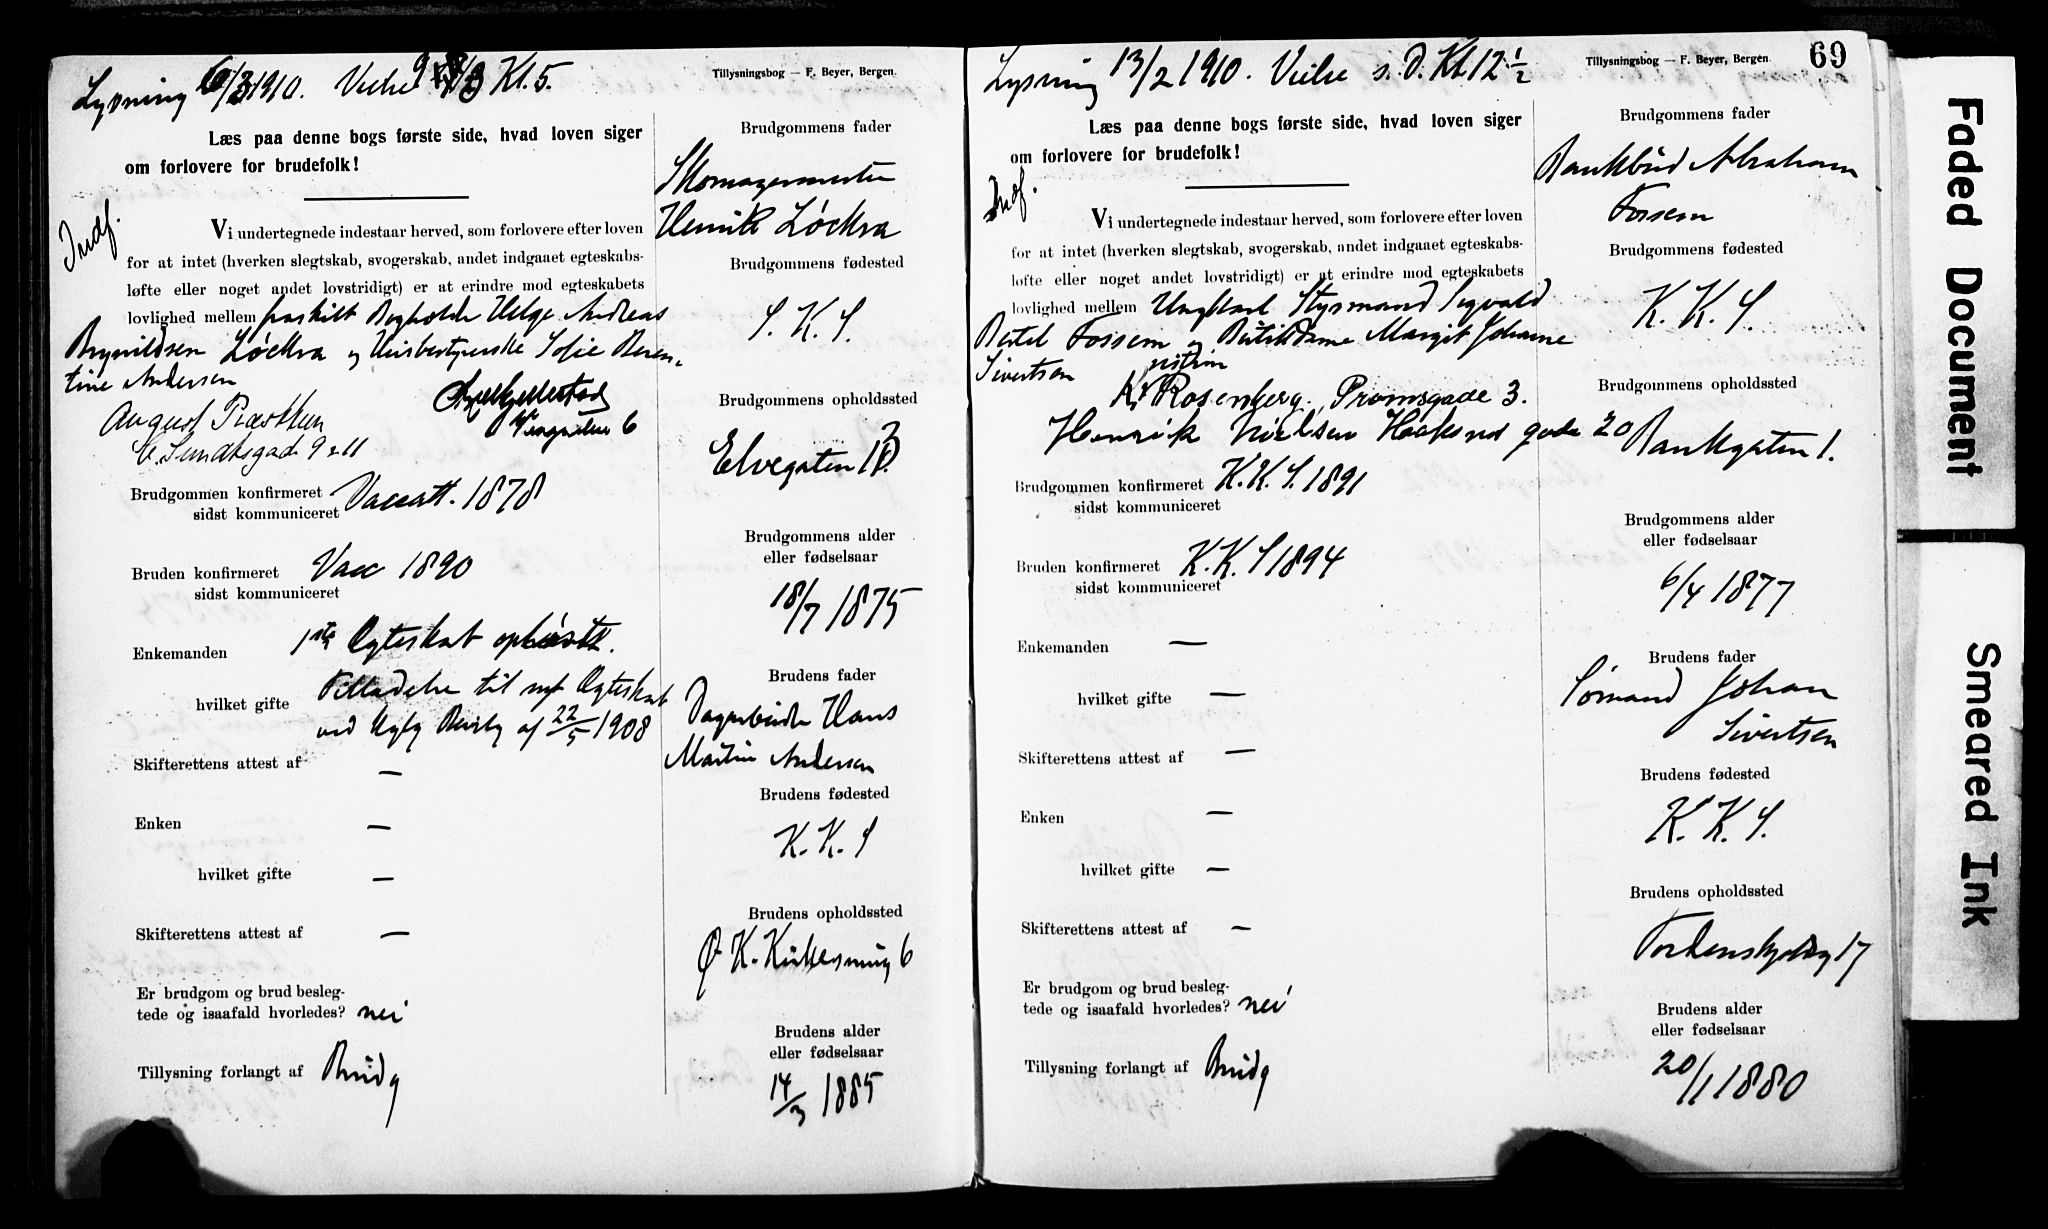 Lysning 6/3 1910. Vielse 9/3 Kl. 5.
Tillysningsbog — F. Beyer, Bergen.
Læs paa denne bogs første side, hvad loven siger
om forlovere for brudefolk!
Indf.
Vi undertegnede indestaar herved, som forlovere efter loven
for at intet (hverken slegtskab, svogerskab, andet indgaaet egteskabs-
løfte eller noget andet lovstridigt) er at erindre mod egteskabets
lovlighed mellem fraskilt Helge Andreas
Brynildsen Løckra og Husbestyrerske Sofie Beren-
tine Andersen
August
C. Sundtsgade 9 & 11
6
Brudgommen konfirmeret Vaccatt. 1878
sidst kommuniceret
Bruden konfirmeret Vacc 1890
sidst kommuniceret
Enkemanden 1ste Egteskab ophævet.
hvilket gifte Tilladelse til nyt Egteskab
ved af 22/5 1908
Skifterettens attest af —
Enken —
hvilket gifte —
Skifterettens attest af —
Er brudgom og brud besleg-
tede og isaafald hvorledes? nei
Tillysning forlangt af Brudg
Brudgommens fader
Skomagermester
Henrik Løckra
Brudgommens fødested
S. K. S.
Brudgommens opholdssted
Elvegaten
Brudgommens alder
eller fødselsaar
18/7 1875
Brudens fader
Hans
Martin Andersen
Brudens fødested
K. K. S
Brudens opholdssted
Ø K. Kirkesmug 6
Brudens alder
eller fødselsaar
14/3 1885
Lysning 13/2 1910. Vielse s. D. Kl 12 1/2
Tillysningsbog — F. Beyer, Bergen.
69
Læs paa denne bogs første side, hvad loven siger
om forlovere for brudefolk!
Indf.
Vi undertegnede indestaar herved, som forlovere efter loven
for at intet (hverken slegtskab, svogerskab, andet indgaaet egteskabs-
løfte eller noget andet lovstridigt) er at erindre mod egteskabets
lovlighed mellem Ungkarl Styrmand Sigvald
Bertel Fossem og Butikdame Margit Johanne
Sivertsen
Kr Rosenberg. Promsgade 3.
Henrik Nielsen gade 20
Brudgommen konfirmeret K. K. S. 1891
sidst kommuniceret
Bruden konfirmeret K. K. S 1894
sidst kommuniceret
Enkemanden —
hvilket gifte —
Skifterettens attest af —
Enken —
hvilket gifte —
Skifterettens attest af —
Er brudgom og brud besleg-
tede og isaafald hvorledes? nei
Tillysning forlangt af Brudg
Brudgommens fader
Bankbud Abraham
Fossem
Brudgommens fødested
K. K. S.
Brudgommens opholdssted
Bankgaten 1.
Brudgommens alder
eller fødselsaar
6/4 1877
Brudens fader
Sømand Johan
Sivertsen
Brudens fødested
K. K. S.
Brudens opholdssted
Tordenskjoldsg 17
Brudens alder
eller fødselsaar
20/1 1880
Faded Document
Smeared Ink